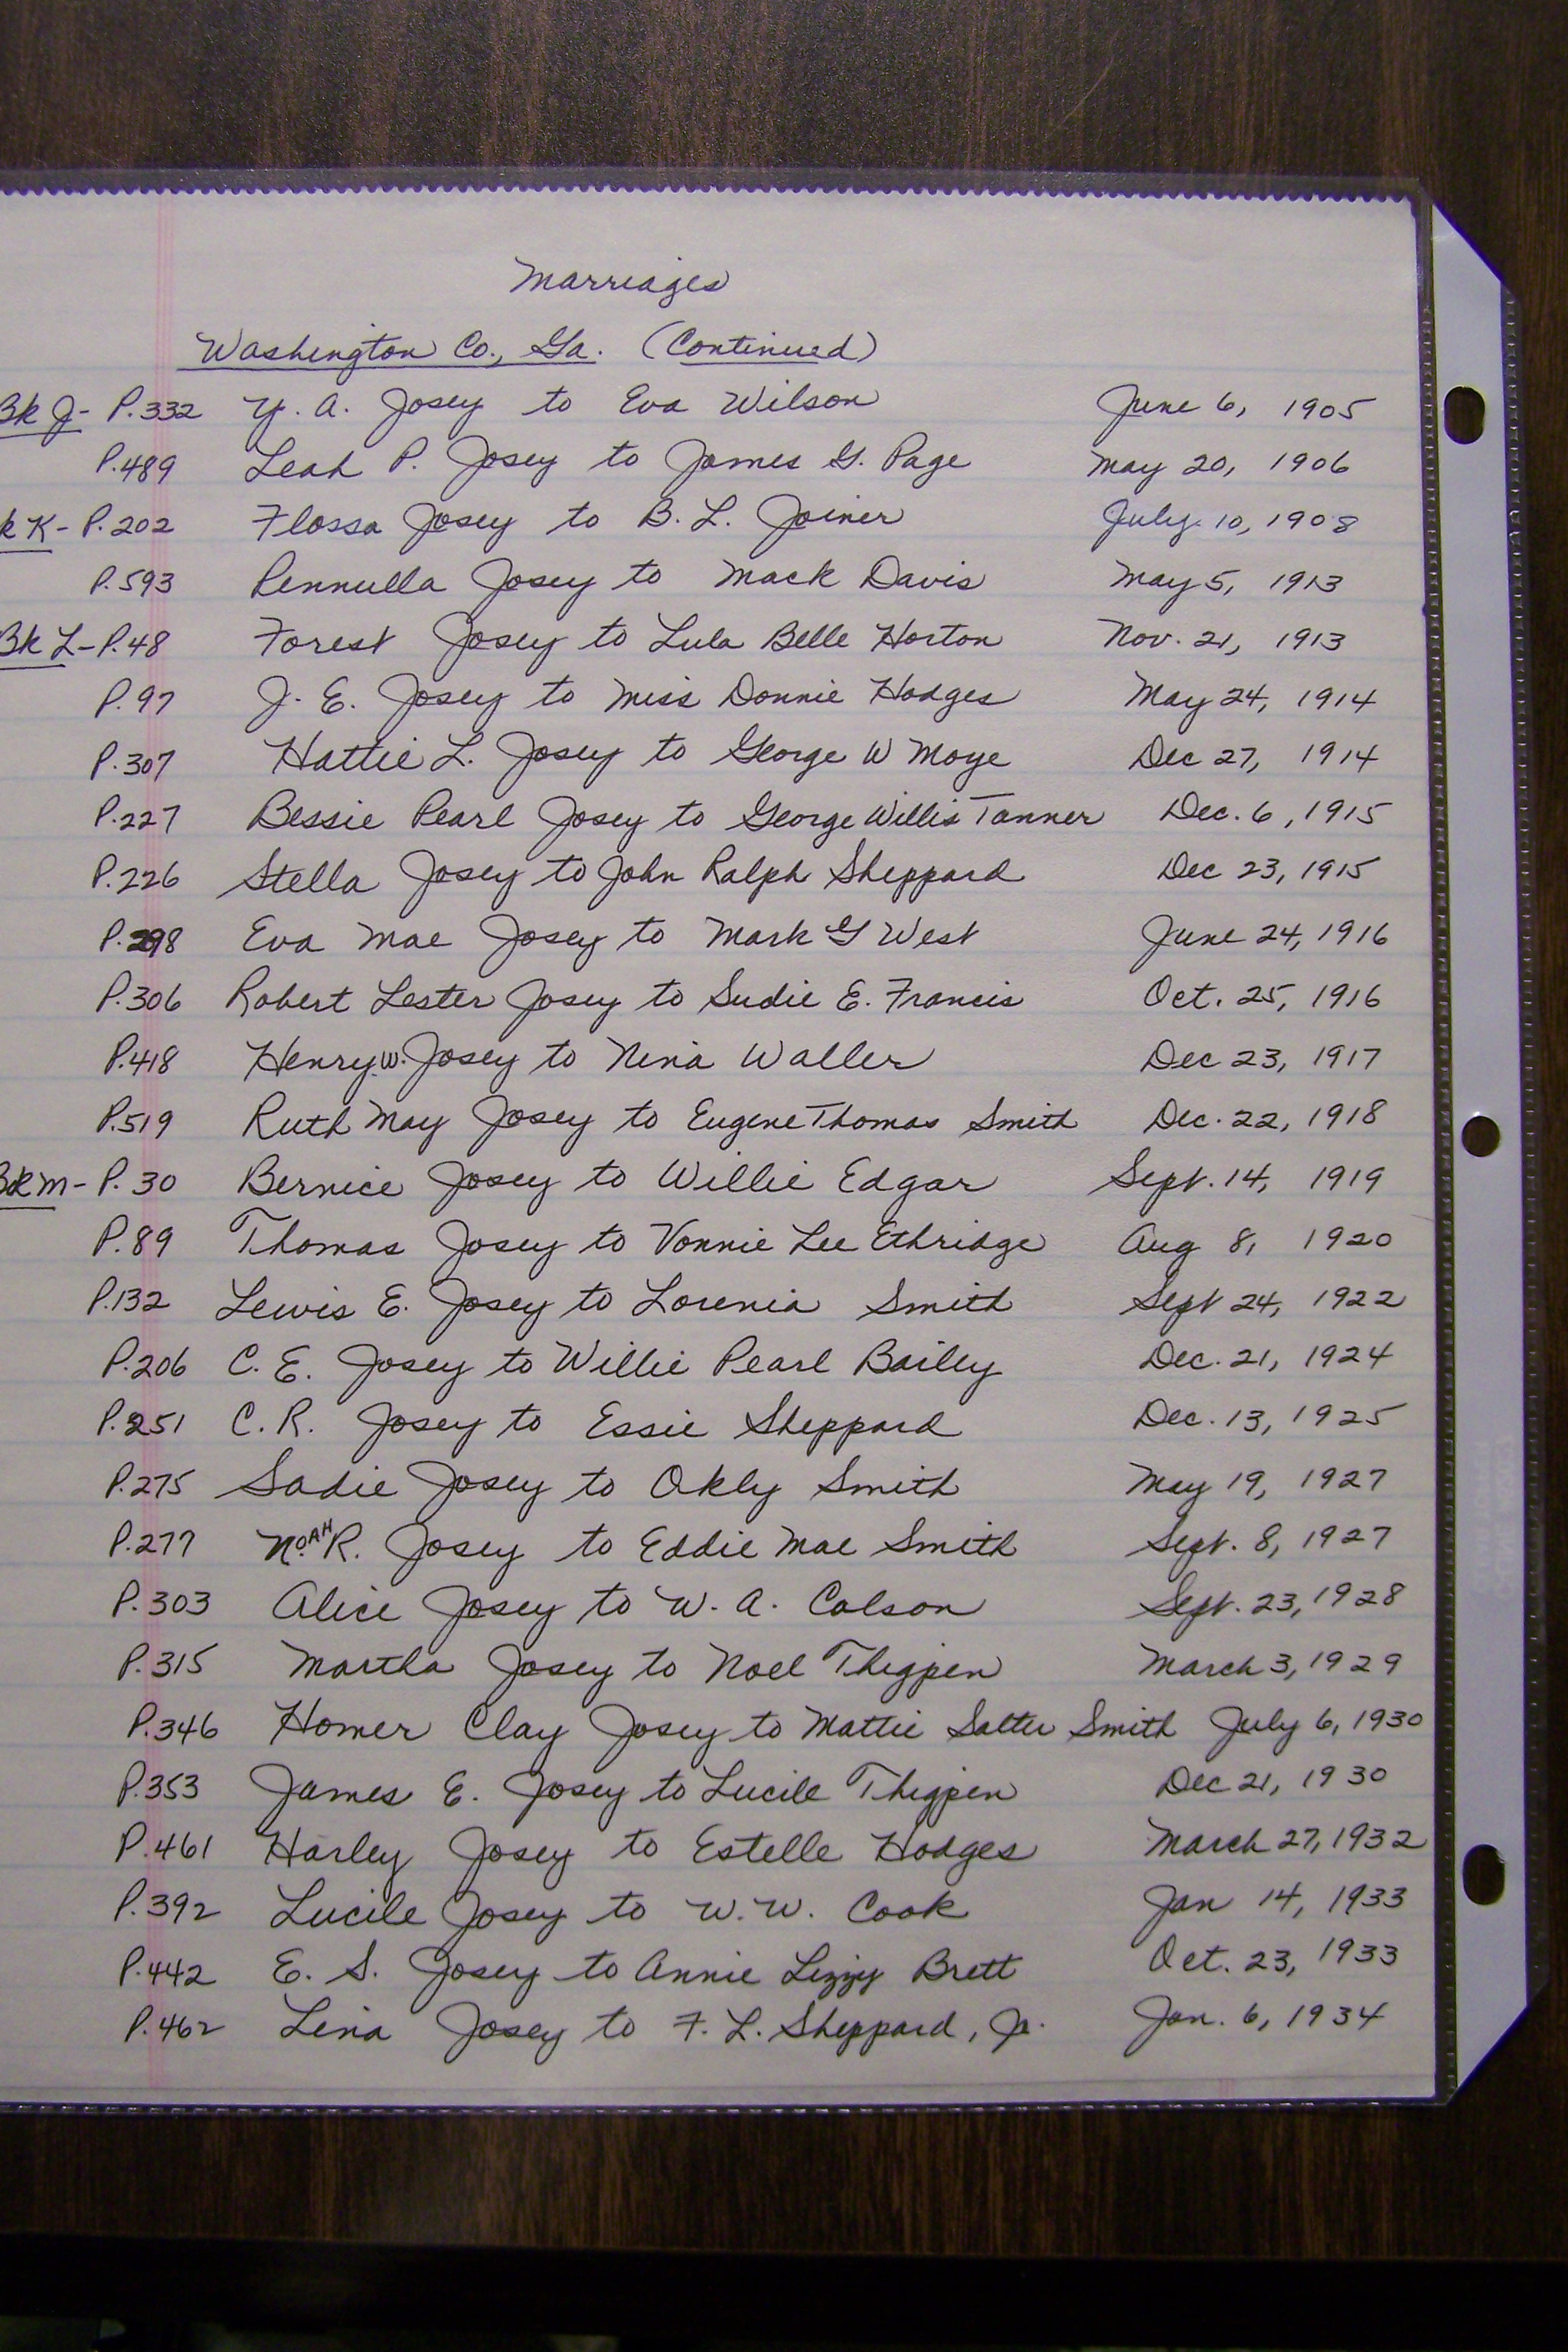 Marriages
Washington Co., Ga. (Continued)
Bk J- P.332 Y. A. Josey to Eva Wilson June 6, 1905
P.489 Leah P. Josey to James G. Page May 20, 1906
k K- P.202 Flossa Josey to B. L. Joiner July 10, 1908
P.593 Pennulla Josey to Mack Davis May 5, 1913
Bk L- P.48 Forest Josey to Lula Belle Horton Nov. 21, 1913
P.97 J. E. Josey to Miss Donnie Hodges May 24, 1914
P.307 Hattie L. Josey to George W Moye Dec 27, 1914
P.227 Bessie Pearl Josey to George Willis Tanner Dec. 6, 1915
P.226 Stella Josey to John Ralph Sheppard Dec 23, 1915
P.298 Eva Mae Josey to Mark G West June 24, 1916
P.306 Robert Lester Josey to Sudie E. Francis Oct. 25, 1916
P.418 Henry W. Josey to Nina Waller Dec 23, 1917
P.519 Ruth May Josey to Eugene Thomas Smith Dec. 22, 1918
Bk M- P. 30 Bernice Josey to Willie Edgar Sept. 14, 1919
P.89 Thomas Josey to Vonnie Lee Ethridge Aug 8, 1920
P.132 Lewis E. Josey to Lorenia Smith Sept 24, 1922
P.206 C. E. Josey to Willie Pearl Bailey Dec. 21, 1924
P.251 C. R. Josey to Essie Sheppard Dec. 13, 1925
P.275 Sadie Josey to Okly Smith May 19, 1927
P.277 NOAH R. Josey to Eddie Mae Smith Sept. 8, 1927
P.303 Alice Josey to W. A. Colson Sept. 23, 1928
P.315 Martha Josey to Noel Thigpen March 3, 1929
P.346 Homer Clay Josey to Mattie Salter Smith July 6, 1930
P.353 James E. Josey to Lucile Thigpen Dec 21, 1930
P.461 Harley Josey to Estelle Hodges March 27, 1932
P.392 Lucile Josey to W. W. Cook Jan 14, 1933
P.442 E. S. Josey to Annie Lizzy Brett Oct. 23, 1933
P.462 Lena Josey to F. L. Sheppard, Jr. Jan. 6, 1934